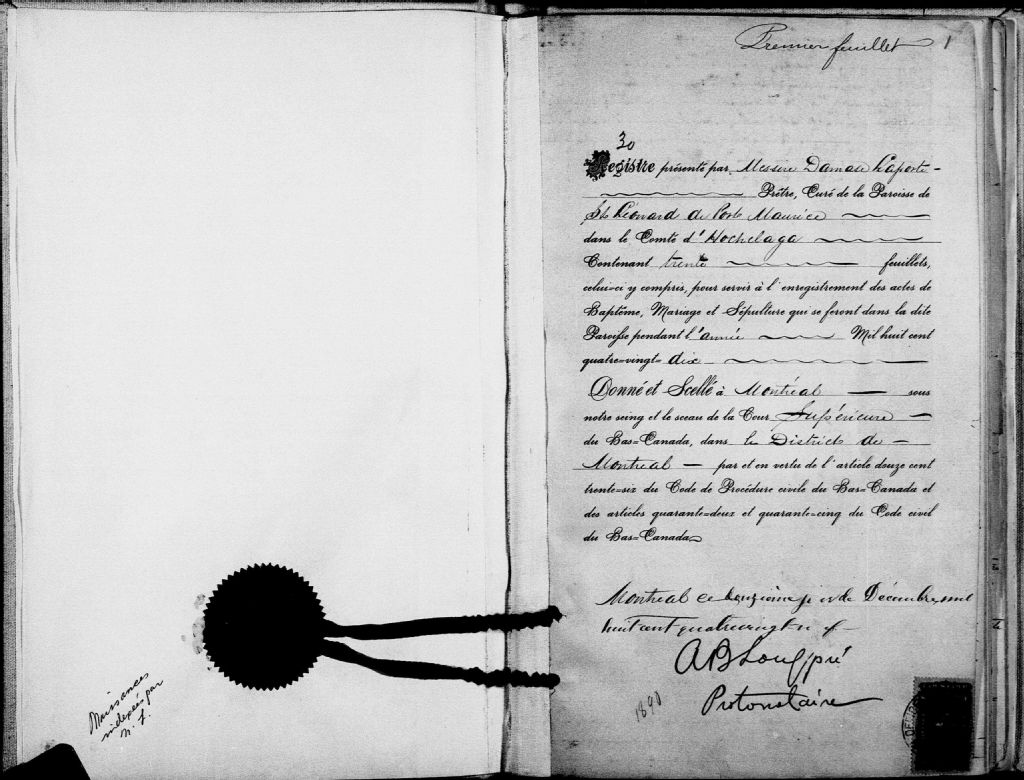 Naissances
indexées par
N. L.
Premier feuillet 1
30
Registre présenté par Messire Damase Laporte
Prêtre, Curé de la Paroisse de
St Léonard de Port Maurice
dans le Comté d'Hochelaga
Contenant trente feuillets,
celui-ci y compris, pour servir à l'enregistrement des actes de
Baptême, Mariage et Sépulture qui se feront dans la dite
Paroisse pendant l'année Mil huit cent
quatre=vingt= dix
Donné et Scellé à Montréal sous
notre seing et le sceau de la Cour Supérieure
du Bas=Canada, dans le District de
Montreal par et en vertu de l'article douze cent
trente=six du Code de Procédure civile du Bas=Canada et
des articles quarante=deux et quarante=cinq du Code civil
du Bas=Canada
Montreal ce jour de Décembre mil
huit cent quatrevingt neuf
AB Longpré
Protonotaire
1890